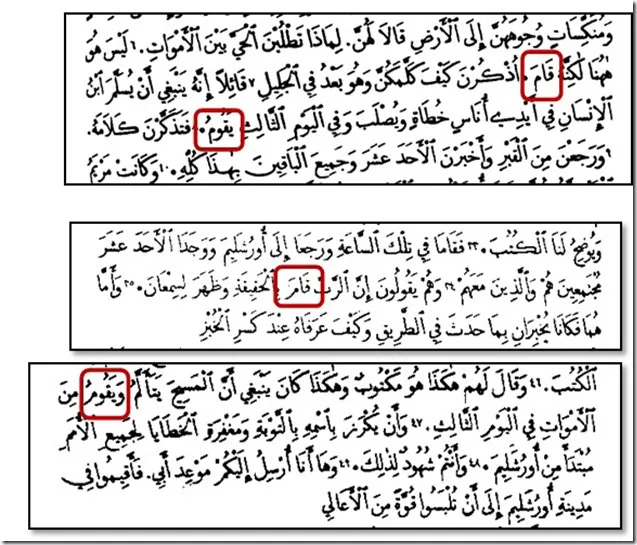 وَمُنَكِّسَاتٍ وُجُوهَهُنَّ إِلَى ٱلْأَرْضِ قَالَا لَهُنَّ. لِمَاذَا تَطْلُبْنَ ٱلْحَيَّ بَيْنَ ٱلْأَمْوَاتِ. ٦ لَيْسَ هُوَ
هٰهُنَا لٰكِنَّهُ قَامَ. اُذْكُرْنَ كَيْفَ كَلَّمَكُنَّ وَهُوَ بَعْدُ فِي ٱلْجَلِيلِ ٧ قَائِلًا إِنَّهُ يَنْبَغِي أَنْ يُسَلَّمَ ٱبْنُ
ٱلْإِنْسَانِ فِي أَيْدِي أُنَاسٍ خُطَاةٍ وَيُصْلَبَ وَفِي ٱلْيَوْمِ ٱلثَّالِثِ يَقُومُ. ٨ فَتَذَكَّرْنَ كَلَامَهُ.
٩ وَرَجَعْنَ مِنَ ٱلْقَبْرِ وَأَخْبَرْنَ ٱلْأَحَدَ عَشَرَ وَجَمِيعَ ٱلْبَاقِينَ بِهٰذَا كُلِّهِ. ١٠ وَكَانَتْ مَرْيَمُ
وَيُوضِحُ لَنَا ٱلْكُتُبَ. ٣٣ فَقَامَا فِي تِلْكَ ٱلسَّاعَةِ وَرَجَعَا إِلَى أُورُشَلِيمَ وَوَجَدَا ٱلْأَحَدَ عَشَرَ
مُجْتَمِعِينَ هُمْ وَٱلَّذِينَ مَعَهُمْ ٣٤ وَهُمْ يَقُولُونَ إِنَّ ٱلرَّبَّ قَامَ بِٱلْحَقِيقَةِ وَظَهَرَ لِسِمْعَانَ. ٣٥ وَأَمَّا
هُمَا فَكَانَا يُخْبِرَانِ بِمَا حَدَثَ فِي ٱلطَّرِيقِ وَكَيْفَ عَرَفَاهُ عِنْدَ كَسْرِ ٱلْخُبْزِ
ٱلْكُتُبَ. ٤٦ وَقَالَ لَهُمْ هٰكَذَا هُوَ مَكْتُوبٌ وَهٰكَذَا كَانَ يَنْبَغِي أَنَّ ٱلْمَسِيحَ يَتَأَلَّمُ وَيَقُومُ مِنَ
ٱلْأَمْوَاتِ فِي ٱلْيَوْمِ ٱلثَّالِثِ. ٤٧ وَأَنْ يُكْرَزَ بِٱسْمِهِ بِٱلتَّوْبَةِ وَمَغْفِرَةِ ٱلْخَطَايَا لِجَمِيعِ ٱلْأُمَمِ
مُبْتَدَأً مِنْ أُورُشَلِيمَ. ٤٨ وَأَنْتُمْ شُهُودٌ لِذٰلِكَ. ٤٩ وَهَا أَنَا أُرْسِلُ إِلَيْكُمْ مَوْعِدَ أَبِي. فَأَقِيمُوا فِي
مَدِينَةِ أُورُشَلِيمَ إِلَى أَنْ تُلْبَسُوا قُوَّةً مِنَ ٱلْأَعَالِي